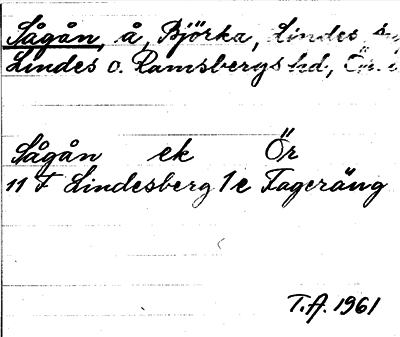 Sågån, å, Björka, Lindes
Lindes o. Ramsbergs hd, Ör.
Sågån ek Ör
11 F Lindesberg 1e Fageräng
T.A. 1961